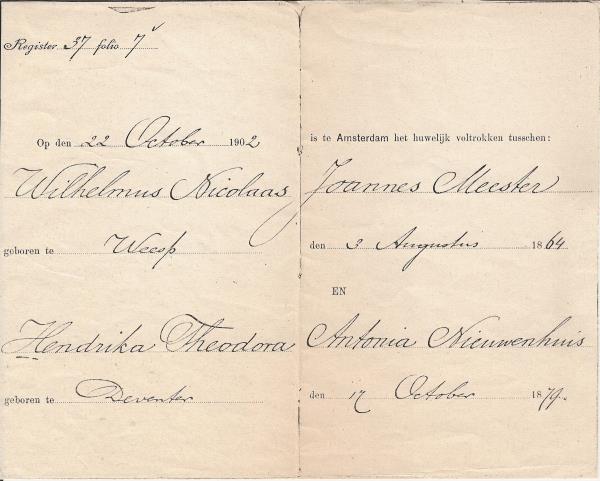 Register 37 folio 7v
Op den 22 October 1902 is te Amsterdam het huwelijk voltrokken tusschen:
Wilhelmus Nicolaas Joannes Meester
geboren te Weesp den 3 Augustus 1864
EN
Hendrika Theodora Antonia Nieuwenhuis
geboren te Deventer den 17 October 1879.